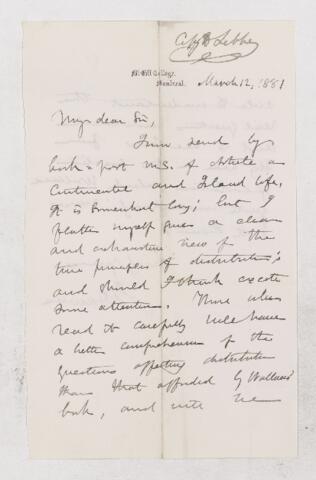 McGill College,
Montreal.
March 12, 1881
My dear Sir,
I now send by
book-post M.S. of Article on
Continental and Island Life.
It is somewhat long; but I
flatter myself gives a clear
and exhaustive view of the
true principles of distribution,
and should I think excite
some attention. Those who
read it carefully will have
a better comprehension of the
questions affecting distribution
than that afforded by Wallace's
book, and will be